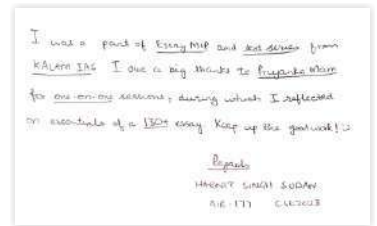 I was a part of Essay MEP and test series from
KALAM IAS I owe a big thanks to Priyanka Mam
for one-on-one sessions, during which I reflected
on essentials of a 130+ essay. Keep up the good work! :)
Regards
SINGH SUDAN
AIR-177 CSE2023